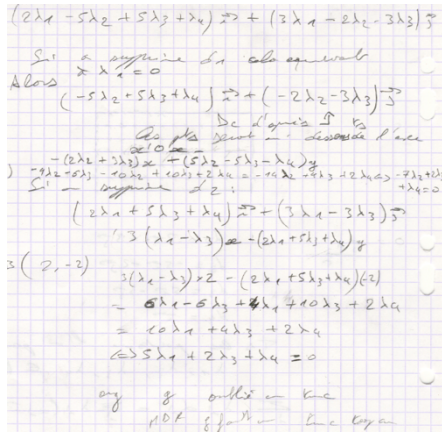 (2λ1 - 5λ2 + 5λ3 + λ4) i→ + (3λ1 - 2λ2 - 3λ3) j→
Si on supprime d1 cela équivaut
à λ1 = 0
Alors
(-5λ2 + 5λ3 + λ4) i→ + (-2λ2 - 3λ3) j→
Dc d'après
les pts sont de l'axe
x'Ox
-(2λ2 + 3λ3)x + (5λ2 - 5λ3 - λ4)y
-4λ2 - 6λ3 - 10λ2 + 10λ3 + 2λ4 = -14λ2 + 4λ3 + 2λ4 <=> -7λ2 + 2λ3
+ λ4 = 0
Si on supprime d2 :
(2λ1 + 5λ3 + λ4) i→ + (3λ1 - 3λ3) j→
3(λ1 - λ3)x - (2λ1 + 5λ3 + λ4)y
(2, -2) 3(λ1 - λ3)×2 - (2λ1 + 5λ3 + λ4)(-2)
= 6λ1 - 6λ3 + 4λ1 + 10λ3 + 2λ4
= 10λ1 + 4λ3 + 2λ4
<=> 5λ1 + 2λ3 + λ4 = 0
oublié un truc
un truc